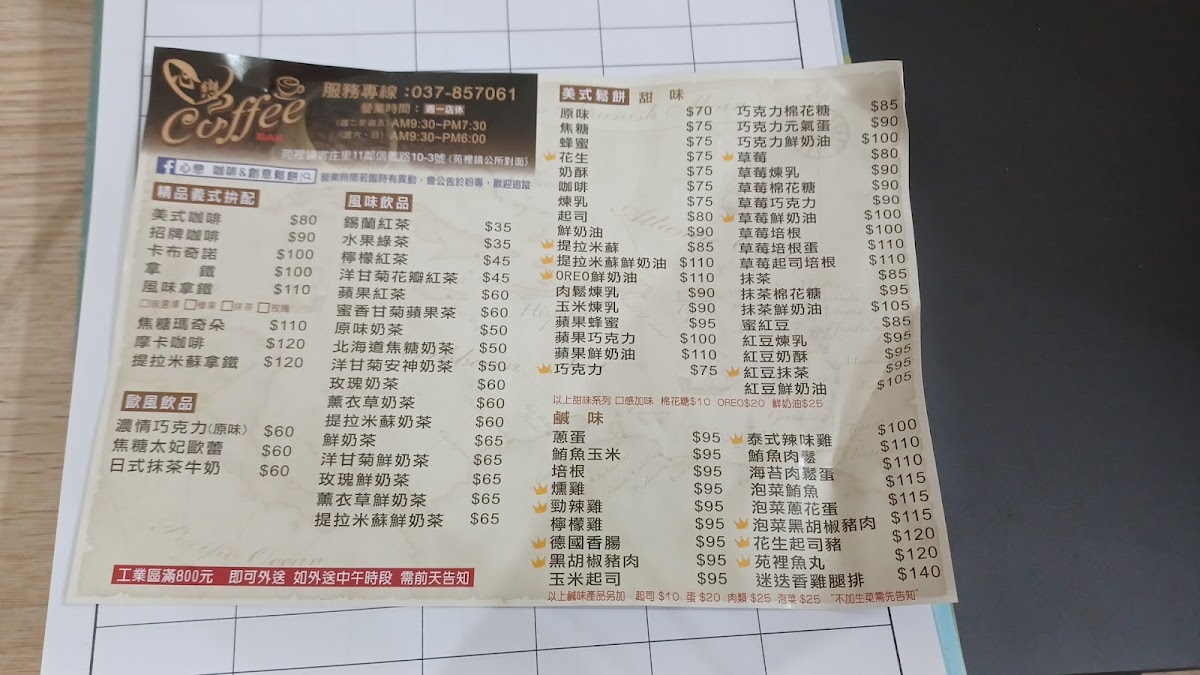 心戀
Coffee
BAR
服務專線:037-857061
營業時間:週一店休
(週二至週五)AM9:30~PM7:30
(週六、日)AM9:30~PM6:00
苑裡鎮客庄里11鄰信義路10-3號(苑裡鎮公所對面)
f 心戀 咖啡&創意鬆餅
營業時間若臨時有異動,會公告於粉專,歡迎追蹤
精品義式拚配
美式咖啡 $80
招牌咖啡 $90
卡布奇諾 $100
拿鐵 $100
風味拿鐵 $110
口味選擇 □榛果 □抹茶 □玫瑰
焦糖瑪奇朵 $110
摩卡咖啡 $120
提拉米蘇拿鐵 $120
歐風飲品
濃情巧克力(原味) $60
焦糖太妃歐蕾 $60
日式抹茶牛奶 $60
風味飲品
錫蘭紅茶 $35
水果綠茶 $35
檸檬紅茶 $45
洋甘菊花瓣紅茶 $45
蘋果紅茶 $60
蜜香甘菊蘋果茶 $60
原味奶茶 $50
北海道焦糖奶茶 $50
洋甘菊安神奶茶 $50
玫瑰奶茶 $60
薰衣草奶茶 $60
提拉米蘇奶茶 $60
鮮奶茶 $65
洋甘菊鮮奶茶 $65
玫瑰鮮奶茶 $65
薰衣草鮮奶茶 $65
提拉米蘇鮮奶茶 $65
工業區滿800元 即可外送 如外送中午時段 需前天告知
美式鬆餅 甜味
原味 $70
焦糖 $75
蜂蜜 $75
花生 $75
奶酥 $75
咖啡 $75
煉乳 $75
起司 $80
鮮奶油 $90
提拉米蘇 $85
提拉米蘇鮮奶油 $110
OREO鮮奶油 $110
肉鬆煉乳 $90
玉米煉乳 $90
蘋果蜂蜜 $95
蘋果巧克力 $100
蘋果鮮奶油 $110
巧克力 $75
巧克力棉花糖 $85
巧克力元氣蛋 $90
巧克力鮮奶油 $100
草莓 $80
草莓煉乳 $90
草莓棉花糖 $90
草莓巧克力 $90
草莓鮮奶油 $100
草莓培根 $100
草莓培根蛋 $110
草莓起司培根 $110
抹茶 $85
抹茶棉花糖 $95
抹茶鮮奶油 $105
蜜紅豆 $85
紅豆煉乳 $95
紅豆奶酥 $95
紅豆抹茶 $95
紅豆鮮奶油 $105
以上甜味系列 口感加味 棉花糖$10 OREO$20 鮮奶油$25
鹹味
蔥蛋 $95
鮪魚玉米 $95
培根 $95
燻雞 $95
勁辣雞 $95
檸檬雞 $95
德國香腸 $95
黑胡椒豬肉 $95
玉米起司 $95
泰式辣味雞 $100
鮪魚肉鬆 $110
海苔肉鬆蛋 $110
泡菜鮪魚 $115
泡菜蔥花蛋 $115
泡菜黑胡椒豬肉 $115
花生起司豬 $120
苑裡魚丸 $120
迷迭香雞腿排 $140
以上鹹味產品另加 起司 $10 蛋 $20 肉類 $25 泡菜 $25 "不加生菜需先告知"